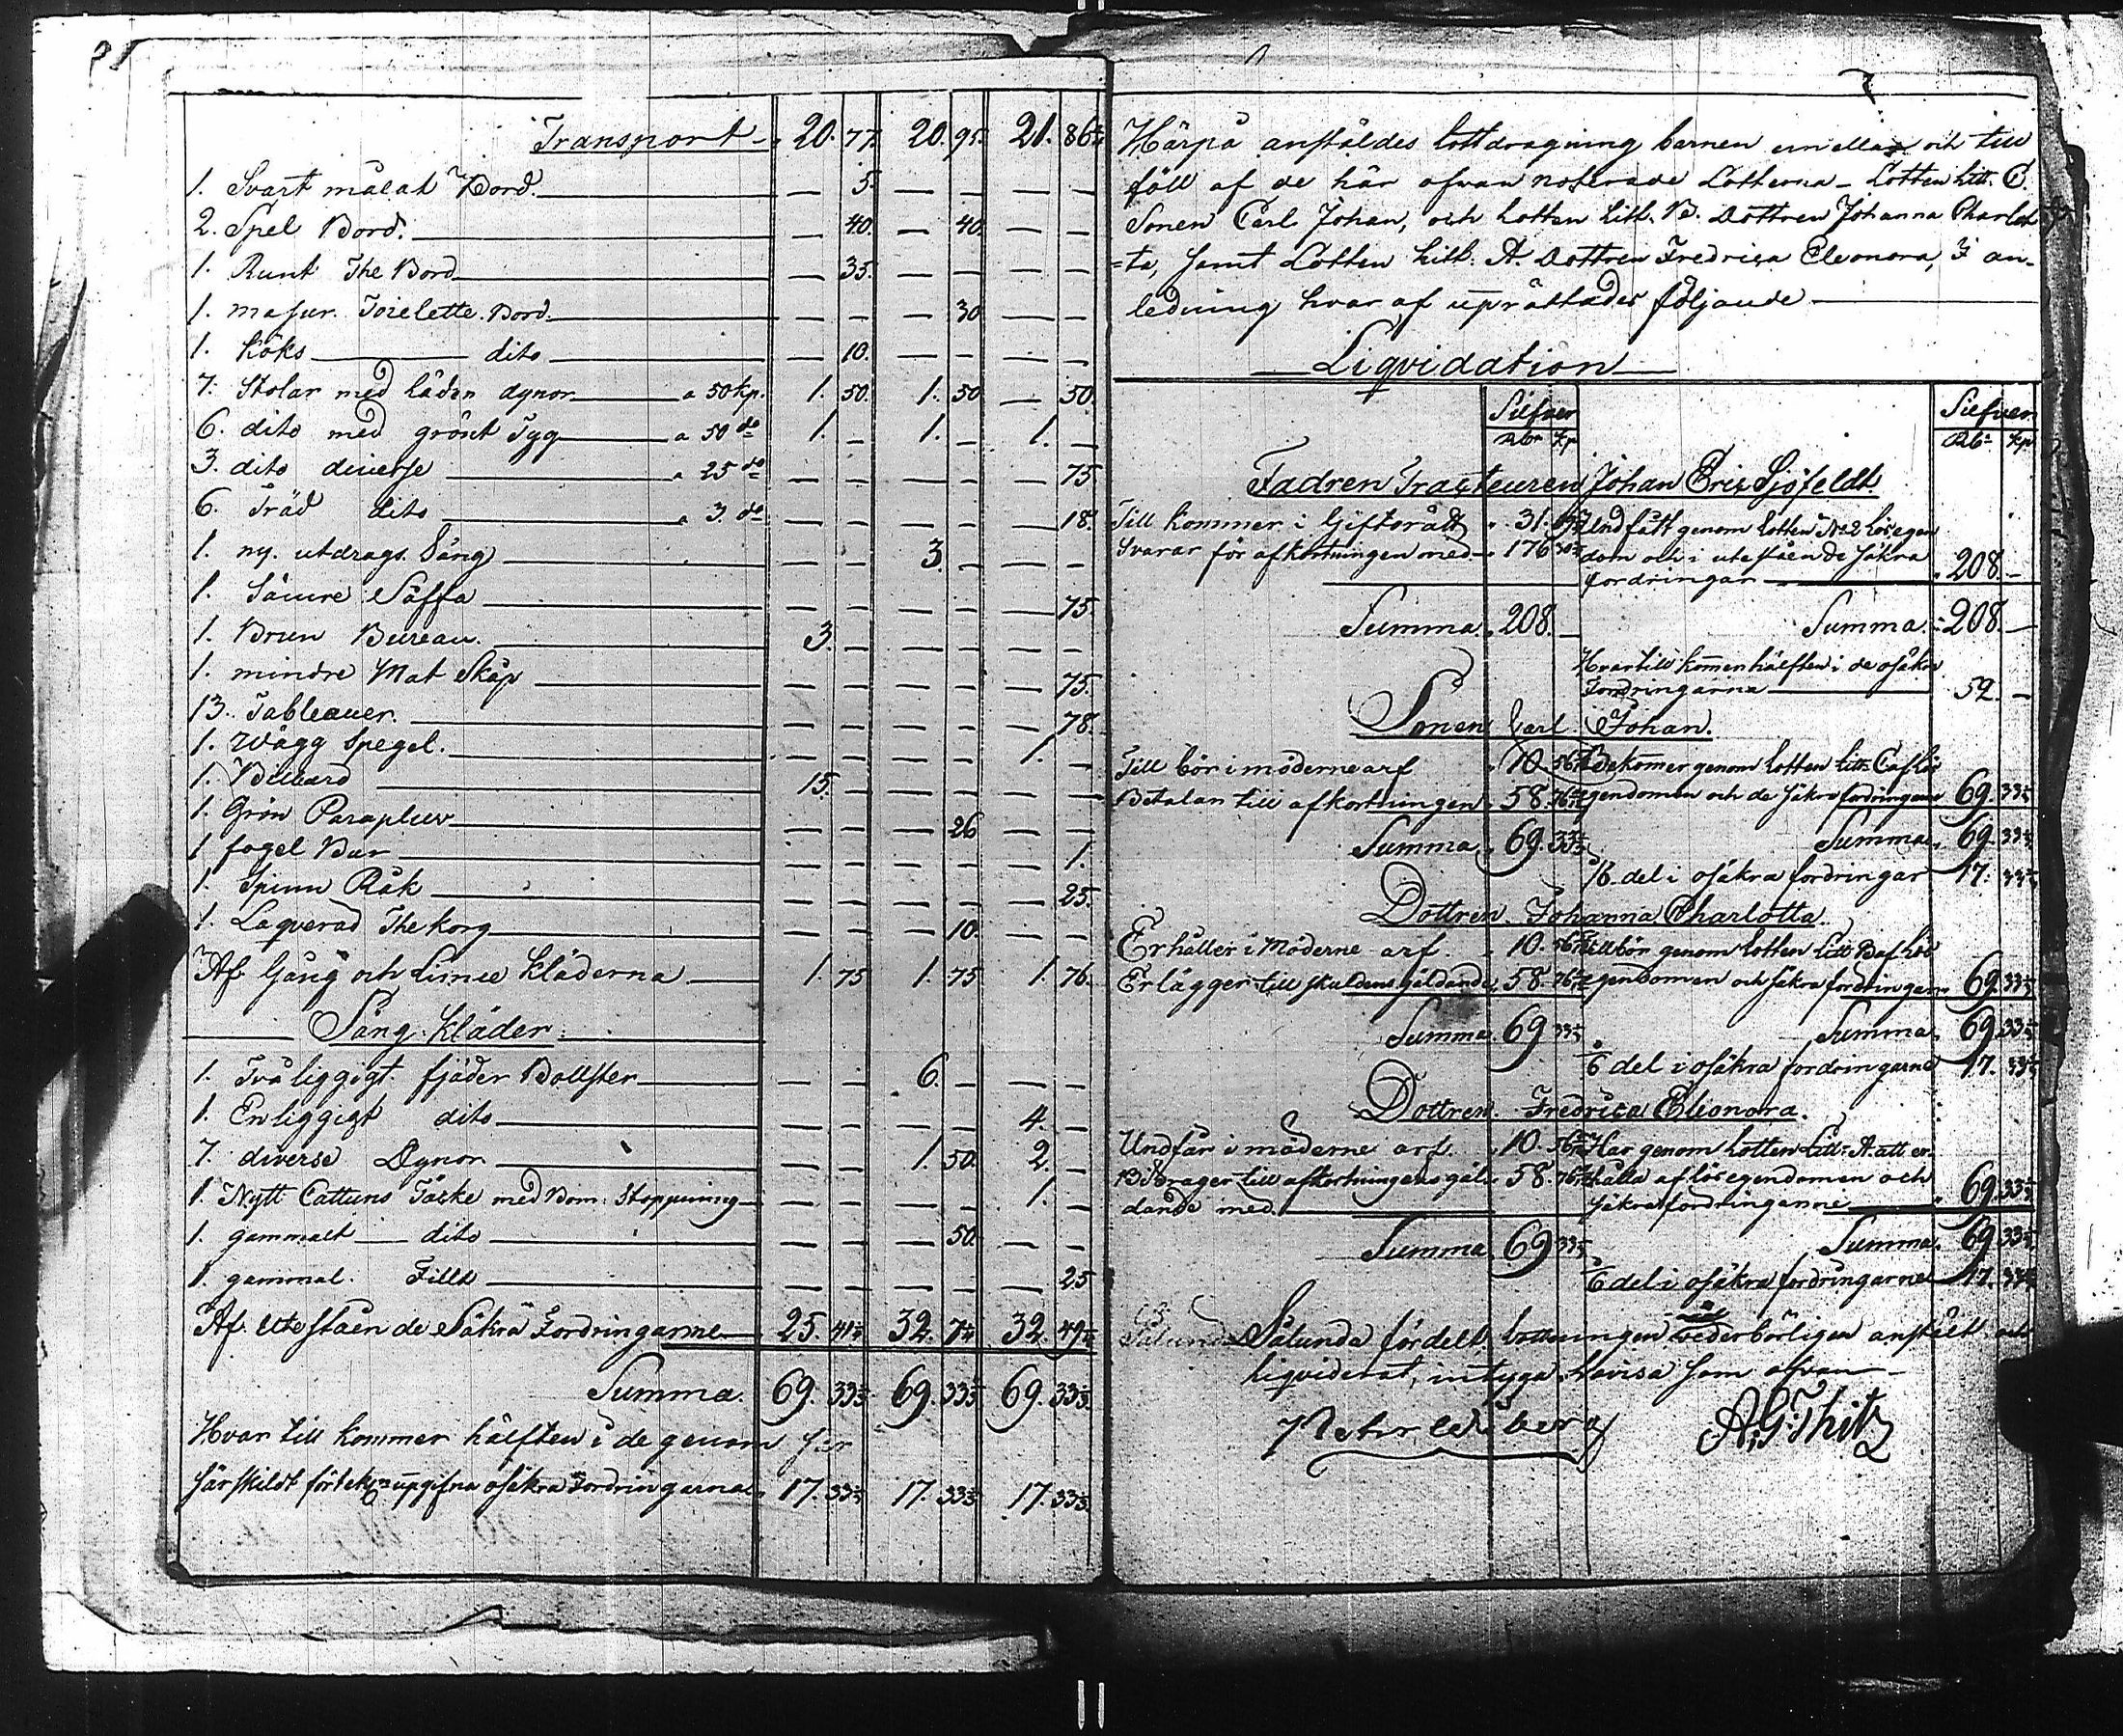 Transport 20. 77. 20. 95. 21. 86
1. Svart målat Bord. — 5. — — — —
2. Spel Bord. — 40. — 40. — —
1. Runt The Bord — 35. — — — —
1. masur Toielette Bord. — — — 30 — —
1. Köks dito — 10. — — — —
7. Stolar med dynor a 50 kp. 1. 50. 1. 50 — 50.
6. dito med grönt Tyg a 50 do 1. — 1. — 1. —
3. dito diverse a 25 do — — — — — 75
6. Träd dito a 3. do — — — — — 18.
1. ny. utdrags Säng — — 3. — — —
1. Sämre Saffa — — — — — 75.
1. Brun Bureau. 3. — — — — —
1. mindre Mat Skåp — — — — — 75.
13. Tableauer. — — — — — 78.
1. Wägg Spegel. — — — — 1. —
1. Billiard 15. — — — — —
1. Grön Parapluv — — — 26 — —
1 fogel Bur — — — — — 1.
1. Spinn Råk — — — — — 25.
1. Laqverad Thekorg — — — 10. — —
Af Gång och Linne Kläderna 1. 75 1. 75 1. 76.
Säng kläder.
1. Två liggigt fjäder Bollster — — 6. — — —
1. Enliggigt dito — — — — 4. —
7. diverse Dynor — — 1. 50. 2. —
1. Nytt Cattuns Täcke med Bom. Stoppning — — — — 1. —
1. gammalt dito — — — 50. — —
1. gammal. Filld — — — — — 25
Af utestående Säkra Fordringarne 25. 32. 32.
Summa. 69. 33⅓ 69. 33⅓ 69. 33⅓
Hvar till kommer hälften i de genom
särskildt uppgifna osäkra Fordringarna 17. 33⅓ 17. 33⅓ 17. 33⅓
Härpå anstäldes lottdragning barnen emellan och till
föll af de här ofvan noterade Lotterna - Lotten Litt. C.
Sonen Carl Johan, och Lotten Litt. B. Dottren Johanna Charlot
=ta, samt Lotten Litt. A. Dottren Fredrica Eleonora, I an-
ledning hvar af upprättades följande
Liqvidation
Silfver Silfver
Rbr kp Rbr kp
Fadren Tracteuren Johan Eric Sjöfeldt.
Till kommer i Giftorätt 31. Undfått genom Lotten No 2 lösegen
Svarar för afkortningen med 176 dom och i utestående säkra
fordringar 208. —
Summa 208. — Summa 208. —
Hvartill kommer hälften i de osäkra
Fordringarna 52. —
Sonen Carl Johan.
Till bör i möderne arf 10. 56 Bekomer genom Lotten Litt. C af lös
Betalar till afkortningen 58. 76 egendomen och de säkra fordringarne 69. 33⅓
Summa 69. 33⅓ Summa 69. 33⅓
1/6 del i osäkra fordringar 17. 33⅓
Dottren Johanna Charlotta.
Erhåller i Möderne arf. 10. 56 Tillbör genom Lotten Litt B af lös
Erlägger till skuldens gäldande 58. 76 egendomen och säkra fordringar 69. 33⅓
Summa 69 33⅓ Summa 69. 33⅓
1/6 del i osäkra fordringarne 17. 33⅓
Dottren Fredrica Eleonora.
Undfår i möderne arf 10. 56 Har genom Lotten Litt. A. att er-
Bidrager till afkortningens gäl- 58. 76 hålla af lösegendomen och
dande med säkra fordringarne 69. 33⅓
Summa 69 33⅓ Summa 69. 33⅓
1/6 del i osäkra fordringarne 17. 33⅓
Sålunda fördelt, lottningen vederbörligen anstält och
liqviderat, intyga Lovisa som ofvan
A. G. Thitz